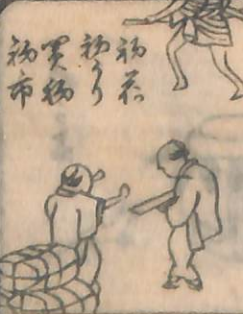 初荷
初うり
買初
初市